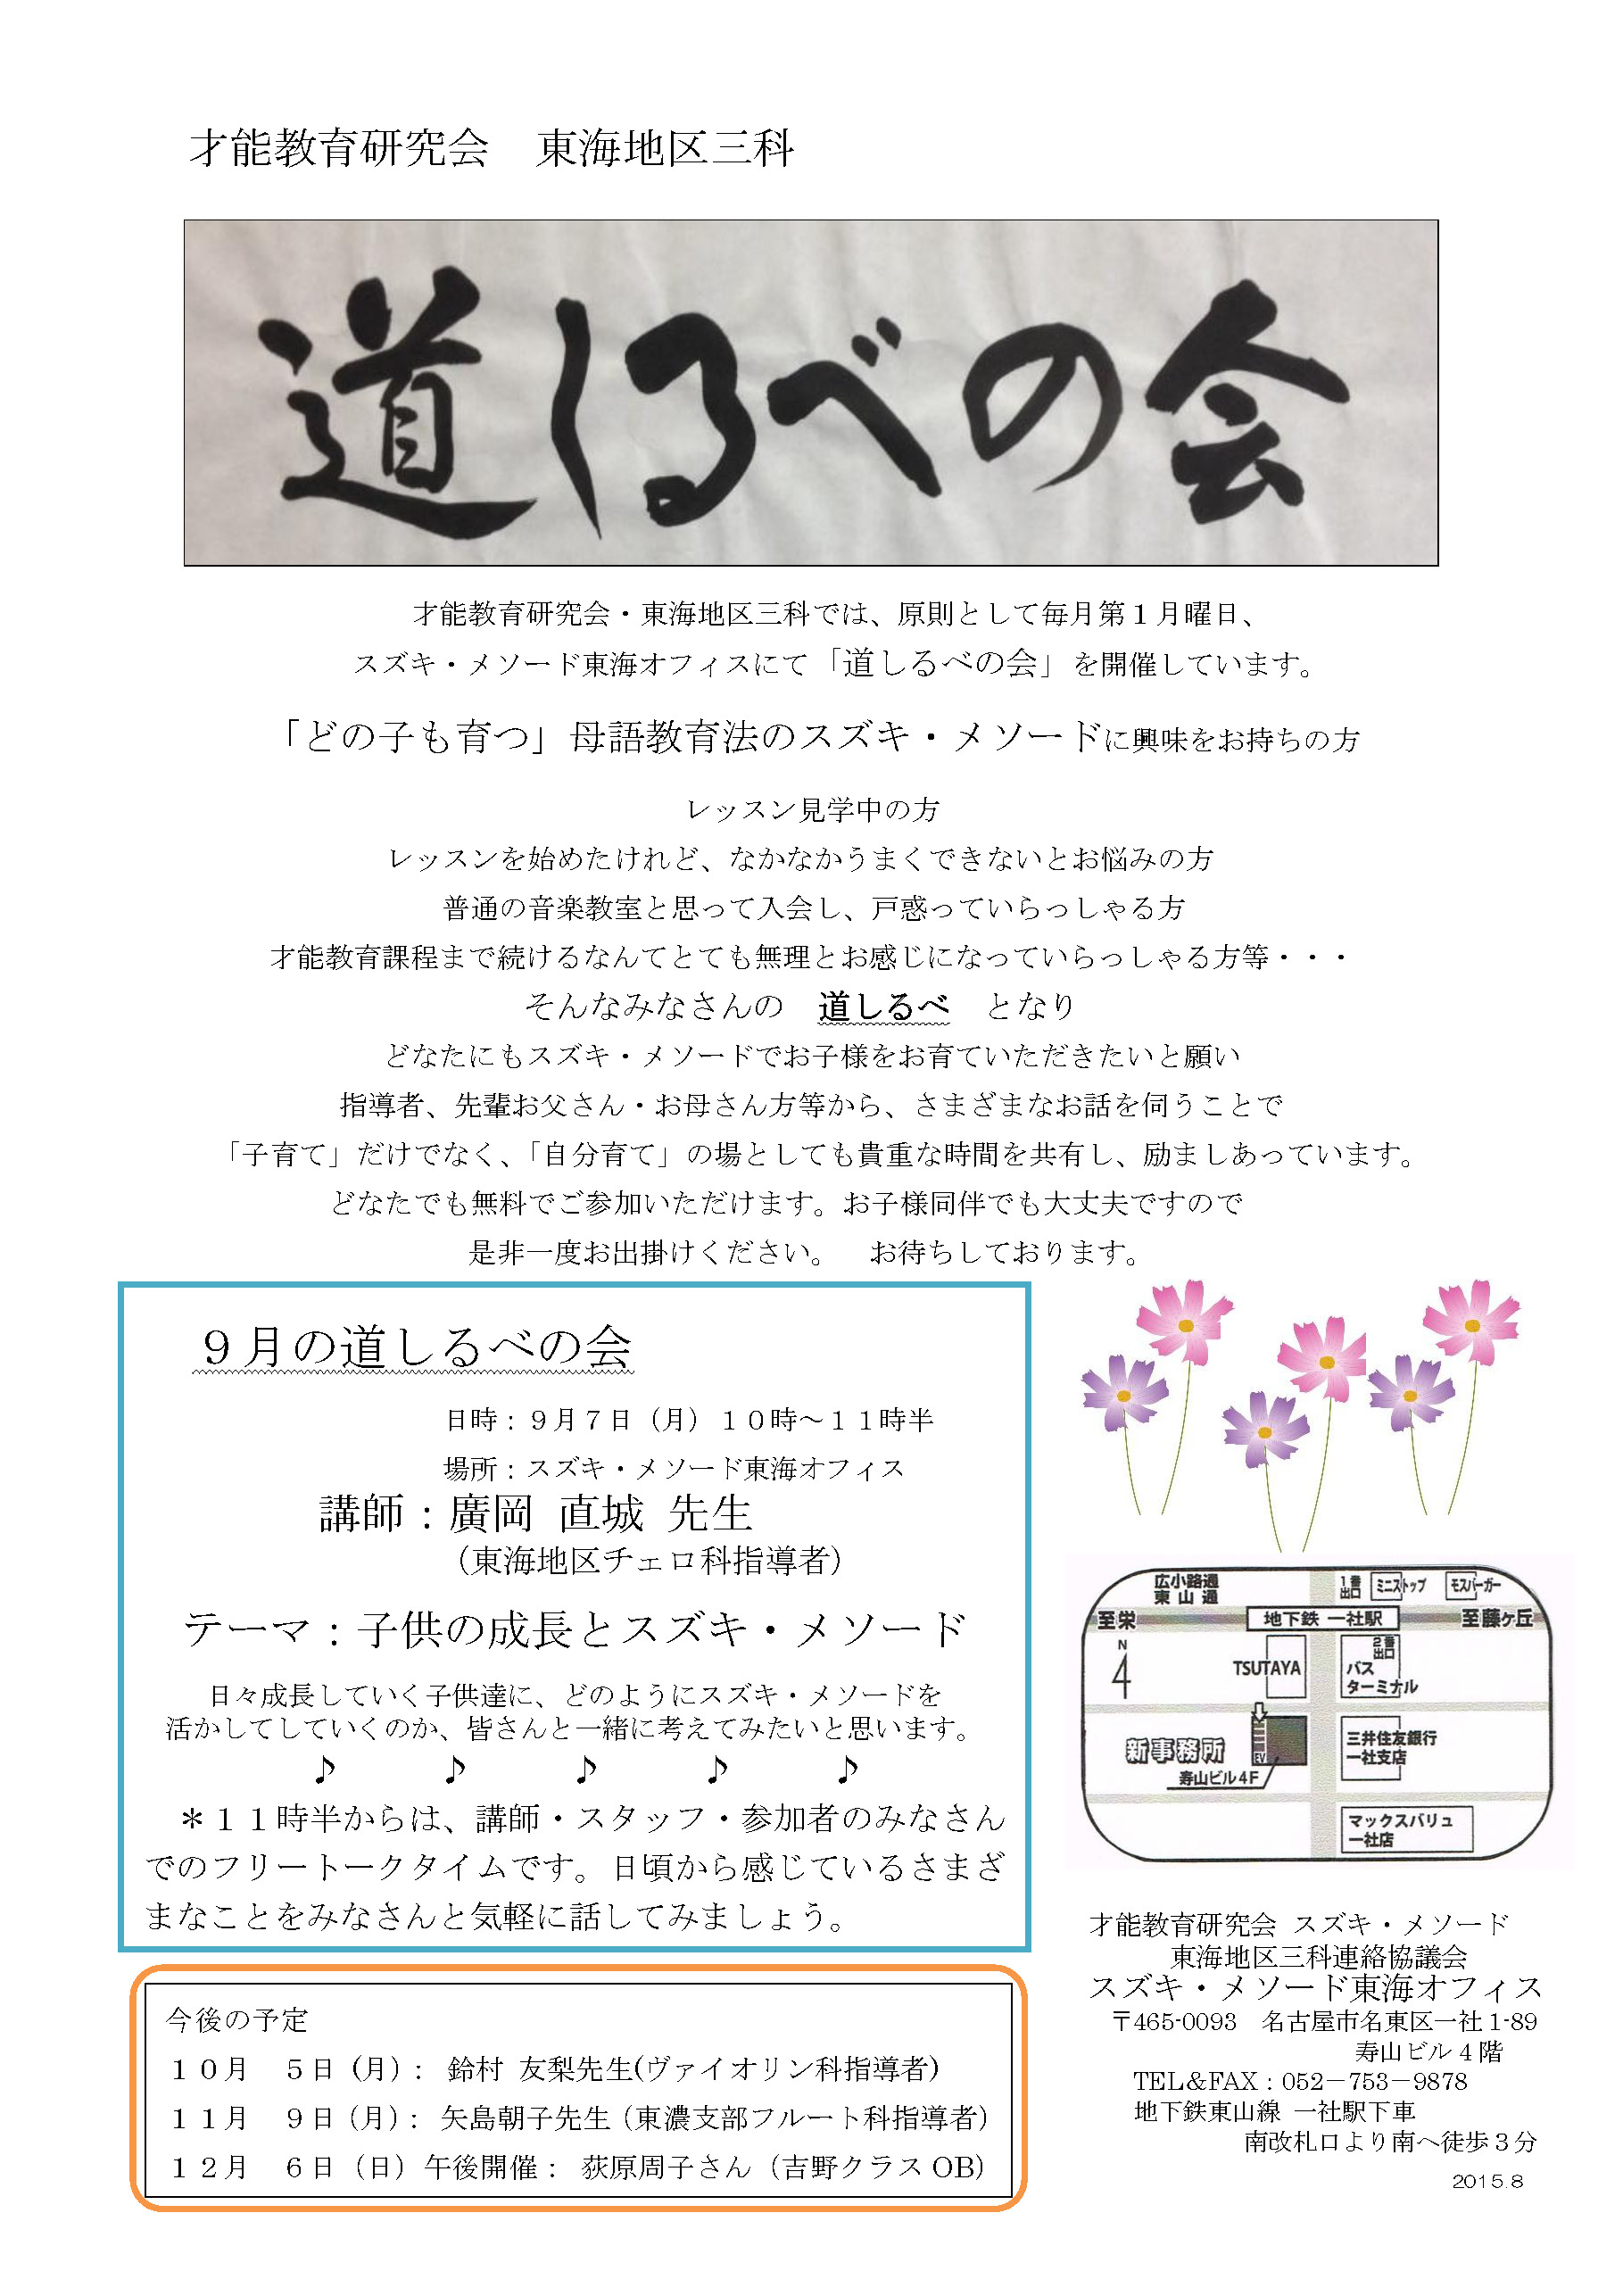 才能教育研究会　東海地区三科
道しるべの会
才能教育研究会・東海地区三科では、原則として毎月第１月曜日、
スズキ・メソード東海オフィスにて「道しるべの会」を開催しています。
「どの子も育つ」母語教育法のスズキ・メソードに興味をお持ちの方
レッスン見学中の方
レッスンを始めたけれど、なかなかうまくできないとお悩みの方
普通の音楽教室と思って入会し、戸惑っていらっしゃる方
才能教育課程まで続けるなんてとても無理とお感じになっていらっしゃる方等・・・
そんなみなさんの　道しるべ　となり
どなたにもスズキ・メソードでお子様をお育ていただきたいと願い
指導者、先輩お父さん・お母さん方等から、さまざまなお話を伺うことで
「子育て」だけでなく、「自分育て」の場としても貴重な時間を共有し、励ましあっています。
どなたでも無料でご参加いただけます。お子様同伴でも大丈夫ですので
是非一度お出掛けください。　お待ちしております。
９月の道しるべの会
日時：９月７日（月）１０時～１１時半
場所：スズキ・メソード東海オフィス
講師：廣岡 直城 先生
（東海地区チェロ科指導者）
テーマ：子供の成長とスズキ・メソード
日々成長していく子供達に、どのようにスズキ・メソードを
活かしてしていくのか、皆さんと一緒に考えてみたいと思います。
♪　♪　♪　♪　♪
＊１１時半からは、講師・スタッフ・参加者のみなさん
でのフリートークタイムです。日頃から感じているさまざ
まなことをみなさんと気軽に話してみましょう。
今後の予定
１０月　５日（月）： 鈴村 友梨先生(ヴァイオリン科指導者)
１１月　９日（月）： 矢島朝子先生（東濃支部フルート科指導者）
１２月　６日（日）午後開催： 荻原周子さん（吉野クラス OB）
広小路通
東山通
1番出口
ミニストップ
モスバーガー
至栄
地下鉄 一社駅
至藤ヶ丘
N
2番出口
TSUTAYA
バス
ターミナル
新事務所
EV
寿山ビル4F
三井住友銀行
一社支店
マックスバリュ
一社店
才能教育研究会 スズキ・メソード
東海地区三科連絡協議会
スズキ・メソード東海オフィス
〒465-0093　名古屋市名東区一社 1-89
寿山ビル４階
TEL&FAX：052－753－9878
地下鉄東山線 一社駅下車
南改札口より南へ徒歩３分
2015.8